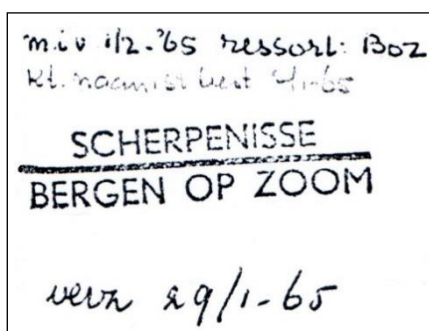 m.i.v 1/2-'65 ressort: Boz
kt. naamst best 4/1-65
SCHERPENISSE
BERGEN OP ZOOM
verz 29/1-65